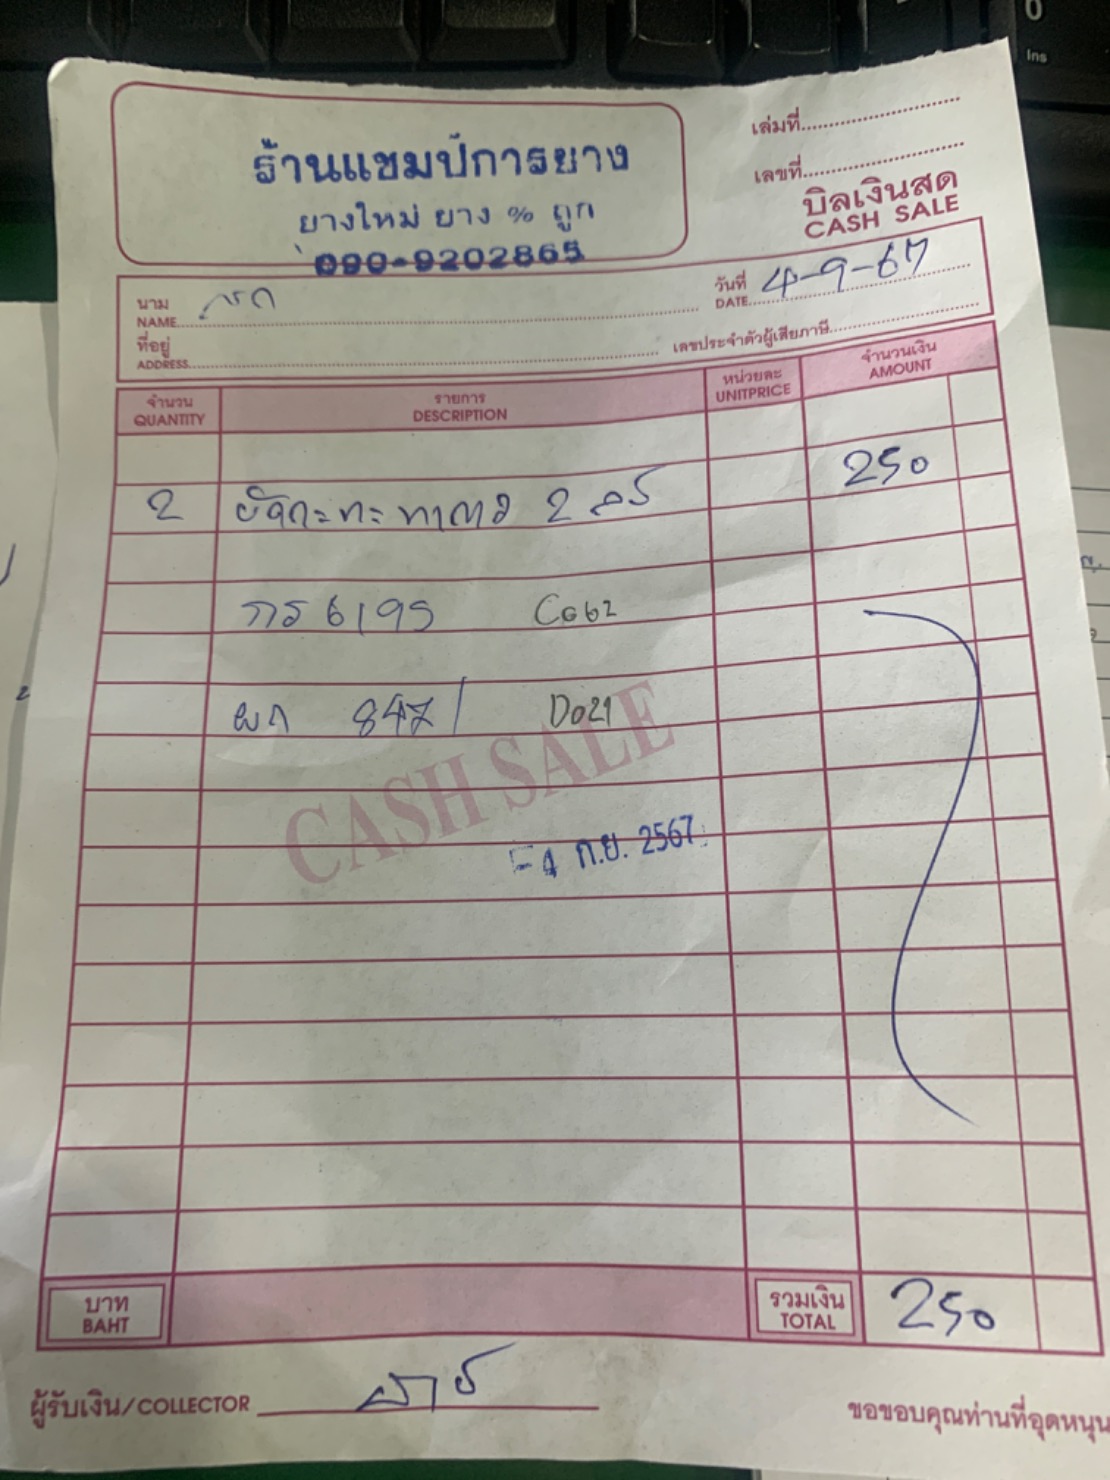 ร้านแชมป์การยาง
ยางใหม่ ยาง % ถูก
090-9202865
เล่มที่
เลขที่
บิลเงินสด
CASH SALE
นาม
NAME
วันที่ 4-9-67
DATE
ที่อยู่
ADDRESS
เลขประจำตัวผู้เสียภาษี
จำนวน รายการ หน่วยละ จำนวนเงิน
QUANTITY DESCRIPTION UNITPRICE AMOUNT
2 2 250
6195 C062
847 D021
CASH SALE
-4 ก.ย. 2567
บาท รวมเงิน 250
BAHT TOTAL
ผู้รับเงิน/COLLECTOR
ขอขอบคุณท่านที่อุดหนุน
0
Ins